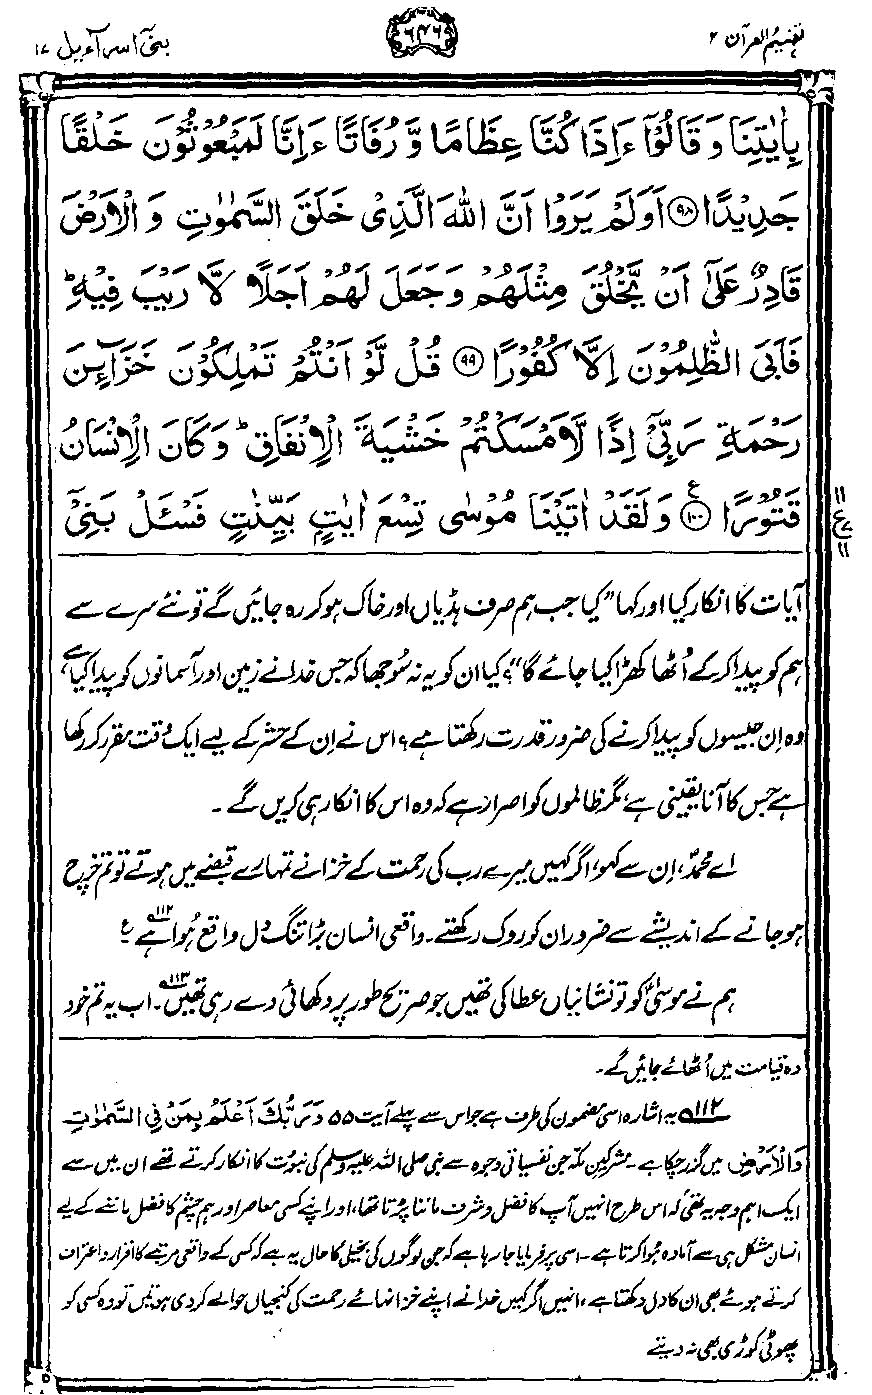 تفہیم القرآن ۲
۶۴۶
بنیٓ اسرآءیل ۱۷
بِاٰيٰتِنَا وَ قَالُوْۤا ءَاِذَا كُنَّا عِظَامًا وَّ رُفَاتًا ءَاِنَّا لَمَبْعُوْثُوْنَ خَلْقًا
جَدِيْدًا ﴿۹۸﴾ اَوَلَمْ يَرَوْا اَنَّ اللّٰهَ الَّذِيْ خَلَقَ السَّمٰوٰتِ وَ الْاَرْضَ
قَادِرٌ عَلٰۤى اَنْ يَّخْلُقَ مِثْلَهُمْ وَ جَعَلَ لَهُمْ اَجَلًا لَّا رَيْبَ فِيْهِ ؕ
فَاَبَى الظّٰلِمُوْنَ اِلَّا كُفُوْرًا ﴿۹۹﴾ قُلْ لَّوْ اَنْتُمْ تَمْلِكُوْنَ خَزَآئِنَ
رَحْمَةِ رَبِّيْۤ اِذًا لَّاَمْسَكْتُمْ خَشْيَةَ الْاِنْفَاقِ ؕ وَ كَانَ الْاِنْسَانُ
قَتُوْرًا ﴿۱۰۰﴾ ع وَ لَقَدْ اٰتَيْنَا مُوْسٰى تِسْعَ اٰيٰتٍۭ بَيِّنٰتٍ فَسْـَٔلْ بَنِيْۤ
آیات کا انکار کیا اور کہا ”کیا جب ہم صرف ہڈیاں اور خاک ہو کر رہ جائیں گے تو نئے سرے سے
ہم کو پیدا کر کے اُٹھا کھڑا کیا جائے گا“؟ کیا ان کو یہ نہ سُوجھا کہ جس خدا نے زمین اور آسمانوں کو پیدا کیا ہے،
وہ اِن جیسوں کو پیدا کرنے کی ضرور قدرت رکھتا ہے؟ اس نے اِن کے حشر کے لیے ایک وقت مقرر کر رکھا
ہے جس کا آنا یقینی ہے، مگر ظالموں کو اصرار ہے کہ وہ اس کا انکار ہی کریں گے۔
اے محمدؐ، اِن سے کہو، اگر کہیں میرے رب کی رحمت کے خزانے تمہارے قبضے میں ہوتے تو تم خرچ
ہو جانے کے اندیشے سے ضرور ان کو روک رکھتے۔ واقعی انسان بڑا تنگ دل واقع ہُوا ہے ۱۱۲؎ ع
ہم نے موسیٰؑ کو نو نشانیاں عطا کی تھیں جو صریح طور پر دکھائی دے رہی تھیں۱۱۳؎۔ اب یہ تم خود
وہ قیامت میں اُٹھائے جائیں گے۔
۱۱۲؎ یہ اشارہ اسی مضمون کی طرف ہے جو اس سے پہلے آیت ۵۵ وَ رَبُّكَ اَعْلَمُ بِمَنْ فِي السَّمٰوٰتِ
وَالْاَرْضِ میں گزر چکا ہے۔ مشرکین مکہ جن نفسیاتی وجوہ سے نبی صلی اللہ علیہ وسلم کی نبوت کا انکار کرتے تھے ان میں سے
ایک اہم وجہ یہ تھی کہ اس طرح انہیں آپ کا فضل و شرف ماننا پڑتا تھا، اور اپنے کسی معاصر اور ہم چشم کا فضل ماننے کے لیے
انسان مشکل ہی سے آمادہ ہُوا کرتا ہے۔ اسی پر فرمایا جا رہا ہے کہ جن لوگوں کی بخیلی کا حال یہ ہے کہ کسی کے واقعی مرتبے کا اقرار و اعتراف
کرتے ہوئے بھی ان کا دل دکھتا ہے، انہیں اگر کہیں خدا نے اپنے خزانہائے رحمت کی کنجیاں حوالے کر دی ہوتیں تو وہ کسی کو
پھوٹی کوڑی بھی نہ دیتے